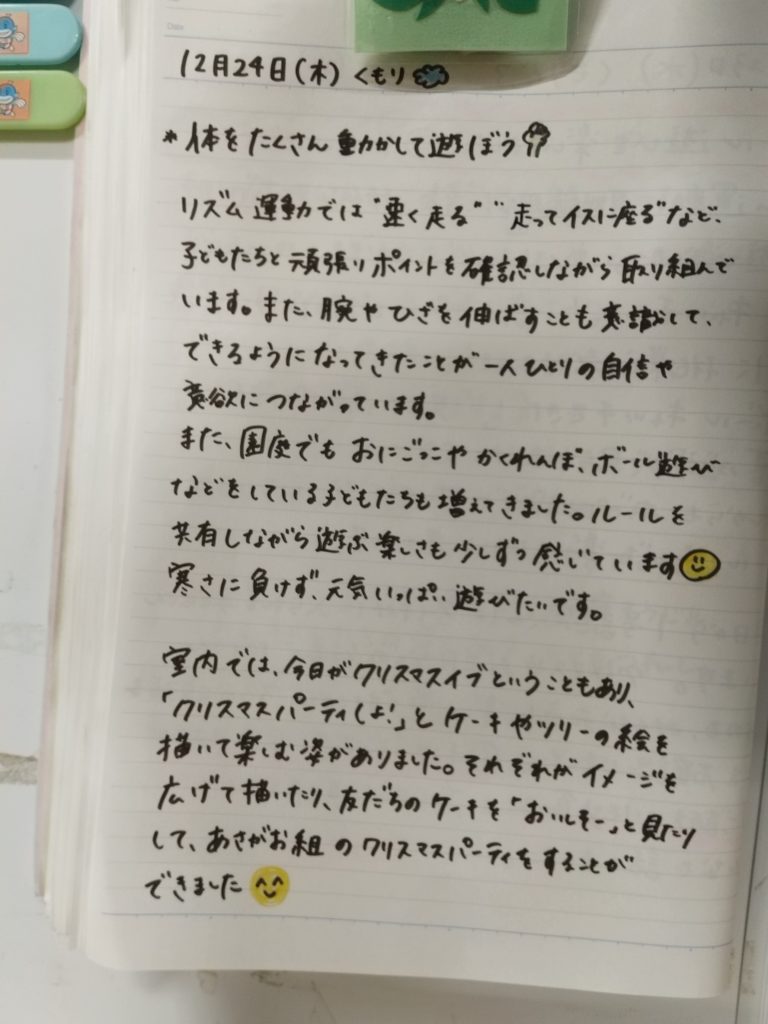 Date
12月24日(木) くもり
*体をたくさん動かして遊ぼう
リズム運動では"速く走る" "走ってイスに座る"など、
子どもたちと頑張りポイントを確認しながら取り組んで
います。また、腕やひざを伸ばすことも意識して、
できるようになってきたことが一人ひとりの自信や
意欲につながっています。
また、園庭でもおにごっこやかくれんぼ、ボール遊び
などをしている子どもたちも増えてきました。ルールを
共有しながら遊ぶ楽しさも少しずつ感じています
寒さに負けず、元気いっぱい遊びたいです。
室内では、今日がクリスマスイブということもあり、
「クリスマスパーティしよ!」とケーキやツリーの絵を
描いて楽しむ姿がありました。それぞれがイメージを
広げて描いたり、友だちのケーキを「おいしそー」と見たり
して、あさがお組のクリスマスパーティをすることが
できました